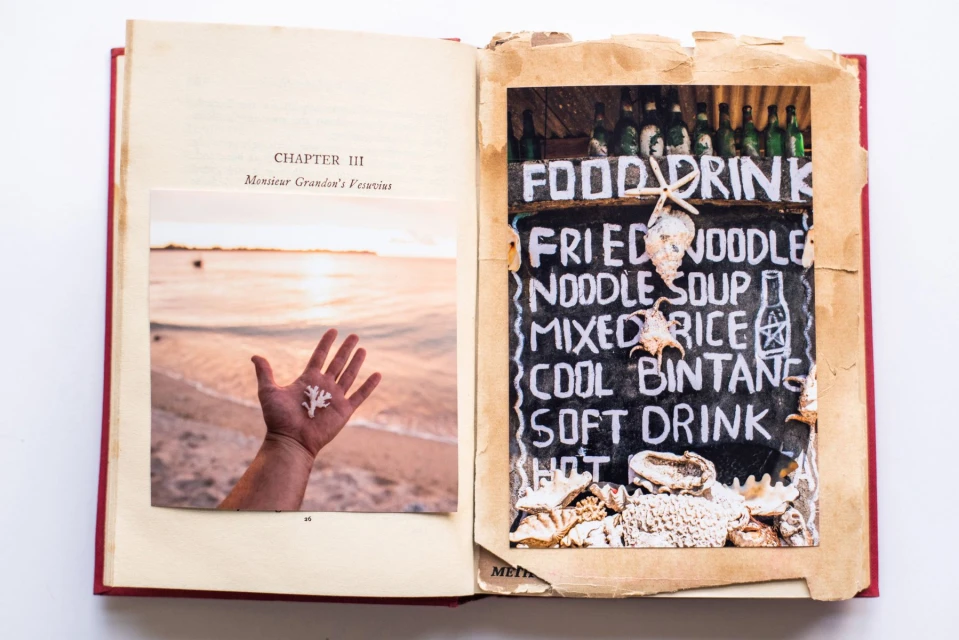 CHAPTER III
Monsieur Grandon's Vesuvius
26
FOOD DRINK
FRIED NOODLE
NOODLE SOUP
MIXED RICE
COOL BINTANG
SOFT DRINK
HOT